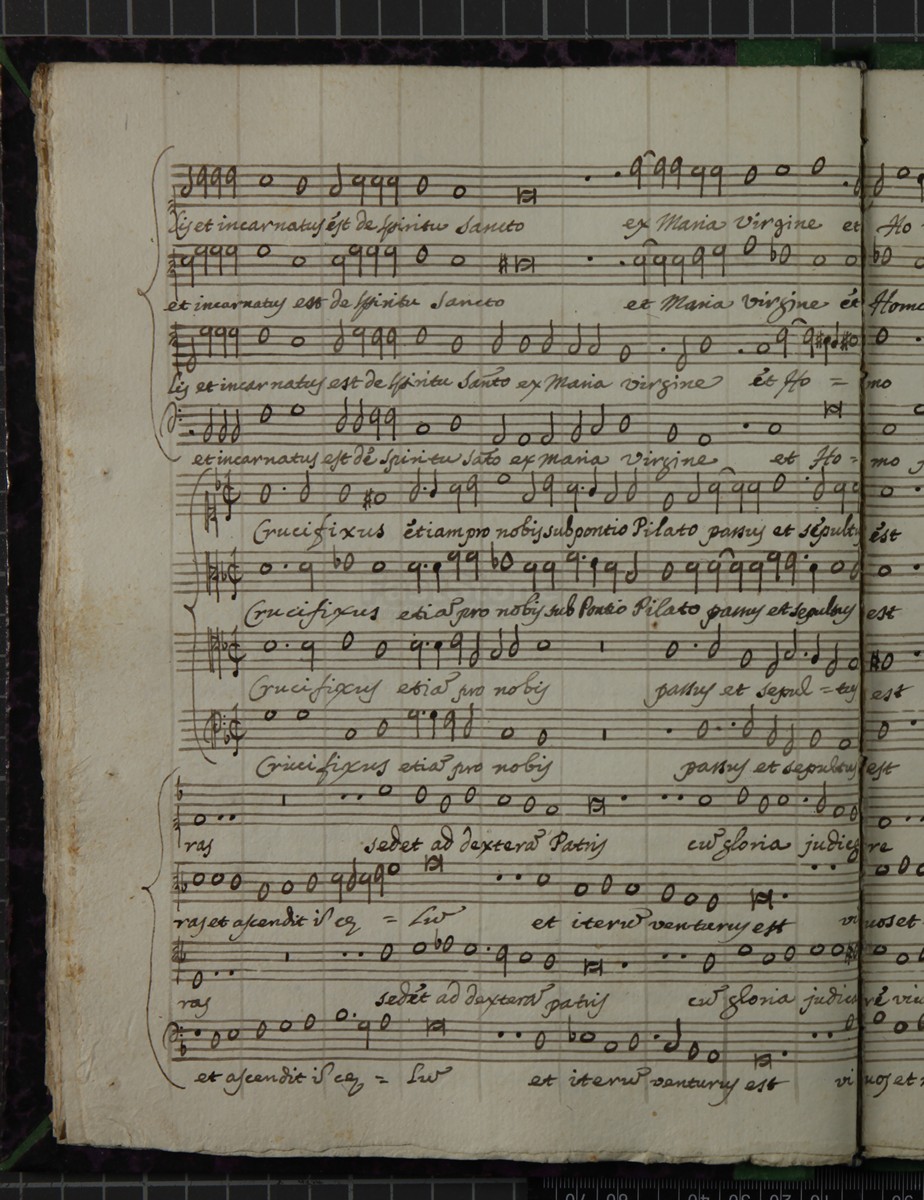 lis et incarnatus est de spiritu Sancto ex Maria Virgine et Ho
et incarnatus est de spiritu Sancto et Maria virgine et Homo
lis et incarnatus est de spiritu Sañto ex Maria virgine et Ho = mo
et incarnatus est de spiritu sãto ex maria virgine et Ho = mo
Crucifixus etiam pro nobis sub pontio Pilato passus et sepultus est
Crucifixus etiã pro nobis sub Pontio Pilato passus et sepultus est
Crucifixus etiã pro nobis passus et sepul = tus est
Crucifixus etiã pro nobis passus et sepultus est
ras sedet ad dexterã Patris cũ gloria judica re
ras et ascendit ĩ cę = lũ et iterũ venturus est vi uos et
ras sedet ad dexterã patris cũ gloria judica re viu
et ascendit ĩ cę = lũ et iterũ venturus est vi uos et